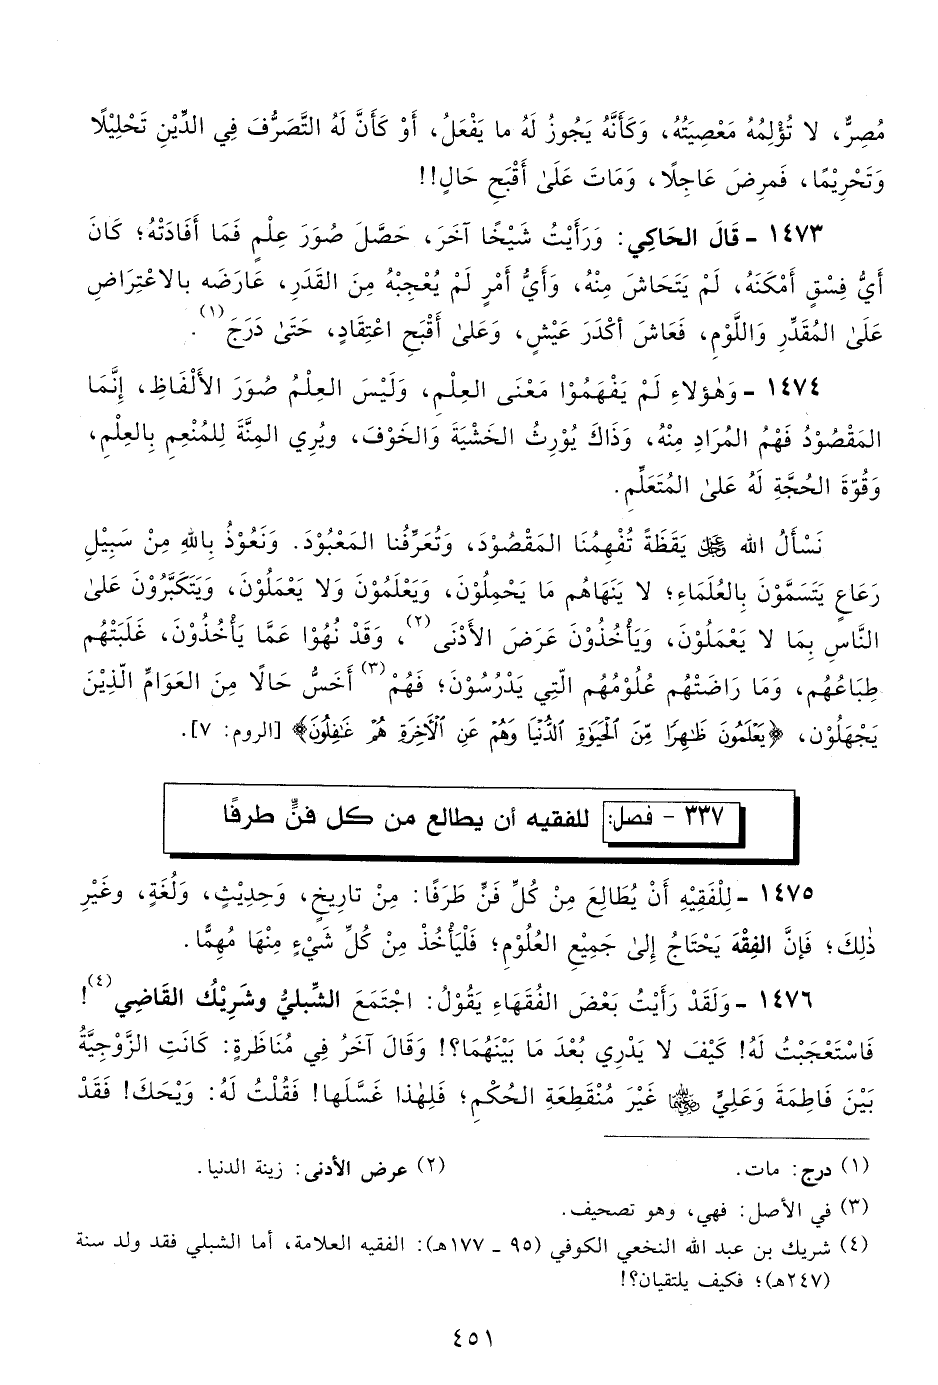 مُصِرٌّ، لا تُؤْلِمُهُ مَعْصِيَتُهُ، وَكَأَنَّهُ يَجُوزُ لَهُ ما يَفْعَلُ، أَوْ كَأَنَّ لَهُ التَّصَرُّفَ فِي الدِّيْنِ تَحْلِيْلًا
وَتَحْرِيْمًا، فَمرِضَ عَاجِلًا، وَمَاتَ عَلَىٰ أَقْبَحِ حَالٍ!!
١٤٧٣ - قَالَ الحَاكِي: وَرَأَيْتُ شَيْخًا آخَرَ، حَصَّلَ صُوَرَ عِلْمٍ فَمَا أَفَادَتْهُ؛ كَانَ
أَيُّ فِسْقٍ أَمْكَنَهُ، لَمْ يَتَحَاشَ مِنْهُ، وَأَيُّ أَمْرٍ لَمْ يُعْجِبْهُ مِنَ القَدَرِ، عَارَضَه بالاعْتِرَاضِ
عَلَىٰ المُقَدِّرِ وَاللَّوْمِ، فَعَاشَ أكْدَرَ عَيْشٍ، وَعَلىٰ أَقْبَحِ اعْتِقَادٍ، حَتىٰ دَرَجَ(١).
١٤٧٤ - وَهٰؤلاءِ لَمْ يَفْهَمُوْا مَعْنَى العِلْمِ، وَلَيْسَ العِلْمُ صُوَرَ الأَلْفَاظِ، إِنَّمَا
المَقْصُوْدُ فَهْمُ المُرَادِ مِنْهُ، وَذَاكَ يُوْرِثُ الخَشْيَةَ وَالخَوْفَ، ويُرِي المِنَّةَ لِلمُنْعِمِ بِالعِلْمِ،
وَقُوَّةَ الحُجَّةِ لَهُ عَلىٰ المُتَعَلِّمِ.
نَسْأَلُ الله ﷻ يَقَظَةً تُفْهِمُنَا المَقْصُوْدَ، وَتُعَرِّفُنا المَعْبُوْدَ. وَنَعُوْذُ بِاللهِ مِنْ سَبِيْلِ
رَعَاعٍ يَتَسَمَّوْنَ بِالعُلَمَاءِ؛ لا يَنْهَاهُم مَا يَحْمِلُوْنَ، وَيَعْلَمُوْنَ وَلا يَعْمَلُوْنَ، وَيَتَكَبَّرُوْنَ عَلىٰ
النَّاسِ بِمَا لا يَعْمَلُوْنَ، وَيَأْخُذُوْنَ عَرَضَ الأَدْنَى(٢)، وَقَدْ نُهُوْا عَمَّا يَأْخُذُوْنَ، غَلَبَتْهُم
طِبَاعُهُم، وَمَا رَاضَتْهُم عُلُوْمُهُم الَّتِي يَدْرُسُوْنَ؛ فَهُمْ(٣) أَخَسُّ حَالًا مِنَ العَوَامِّ الَّذِيْنَ
يَجْهَلُوْن، ﴿يَعْلَمُونَ ظَٰهِرًا مِّنَ ٱلْحَيَوٰةِ ٱلدُّنْيَا وَهُمْ عَنِ ٱلْءَاخِرَةِ هُمْ غَٰفِلُونَ﴾ [الروم: ٧].
٣٣٧ - فصل: للفقيه أن يطالع من كل فنٍّ طرفًا
١٤٧٥ - لِلْفَقِيْهِ أَنْ يُطَالِعَ مِنْ كُلِّ فَنٍّ طَرَفًا: مِنْ تاريخٍ، وَحِدِيْثٍ، وَلُغَةٍ، وغَيْرِ
ذٰلِكَ؛ فَإِنَّ الفِقْهَ يَحْتَاجُ إِلىٰ جَمِيْعِ العُلُوْمِ؛ فَلْيَأْخُذْ مِنْ كُلِّ شَيْءٍ مِنْهَا مُهِمًّا.
١٤٧٦ - وَلَقَدْ رَأَيْتُ بَعْضَ الفُقَهَاءِ يَقُوْلُ: اجْتَمَعَ الشِّبليُّ وشَرِيْكُ القَاضِي(٤)!
فَاسْتَعْجَبْتُ لَهُ! كَيْفَ لا يَدْرِي بُعْدَ مَا بَيْنَهُمَا؟! وَقَالَ آخَرُ فِي مُنَاظَرةٍ: كَانَتِ الزَّوْجِيَّةُ
بَيْنَ فَاطِمَةَ وَعَلِيٍّ رضي الله عنهما غَيْرَ مُنْقَطِعَةِ الحُكْمِ؛ فَلِهٰذا غَسَّلَها! فَقُلْتُ لَهُ: وَيْحَكَ! فَقَدْ
(١) درج: مات.
(٢) عرض الأدنى: زينة الدنيا.
(٣) في الأصل: فهي، وهو تصحيف.
(٤) شريك بن عبد الله النخعي الكوفي (٩٥ - ١٧٧هـ): الفقيه العلامة، أما الشبلي فقد ولد سنة
(٢٤٧هـ)؛ فكيف يلتقيان؟!
٤٥١